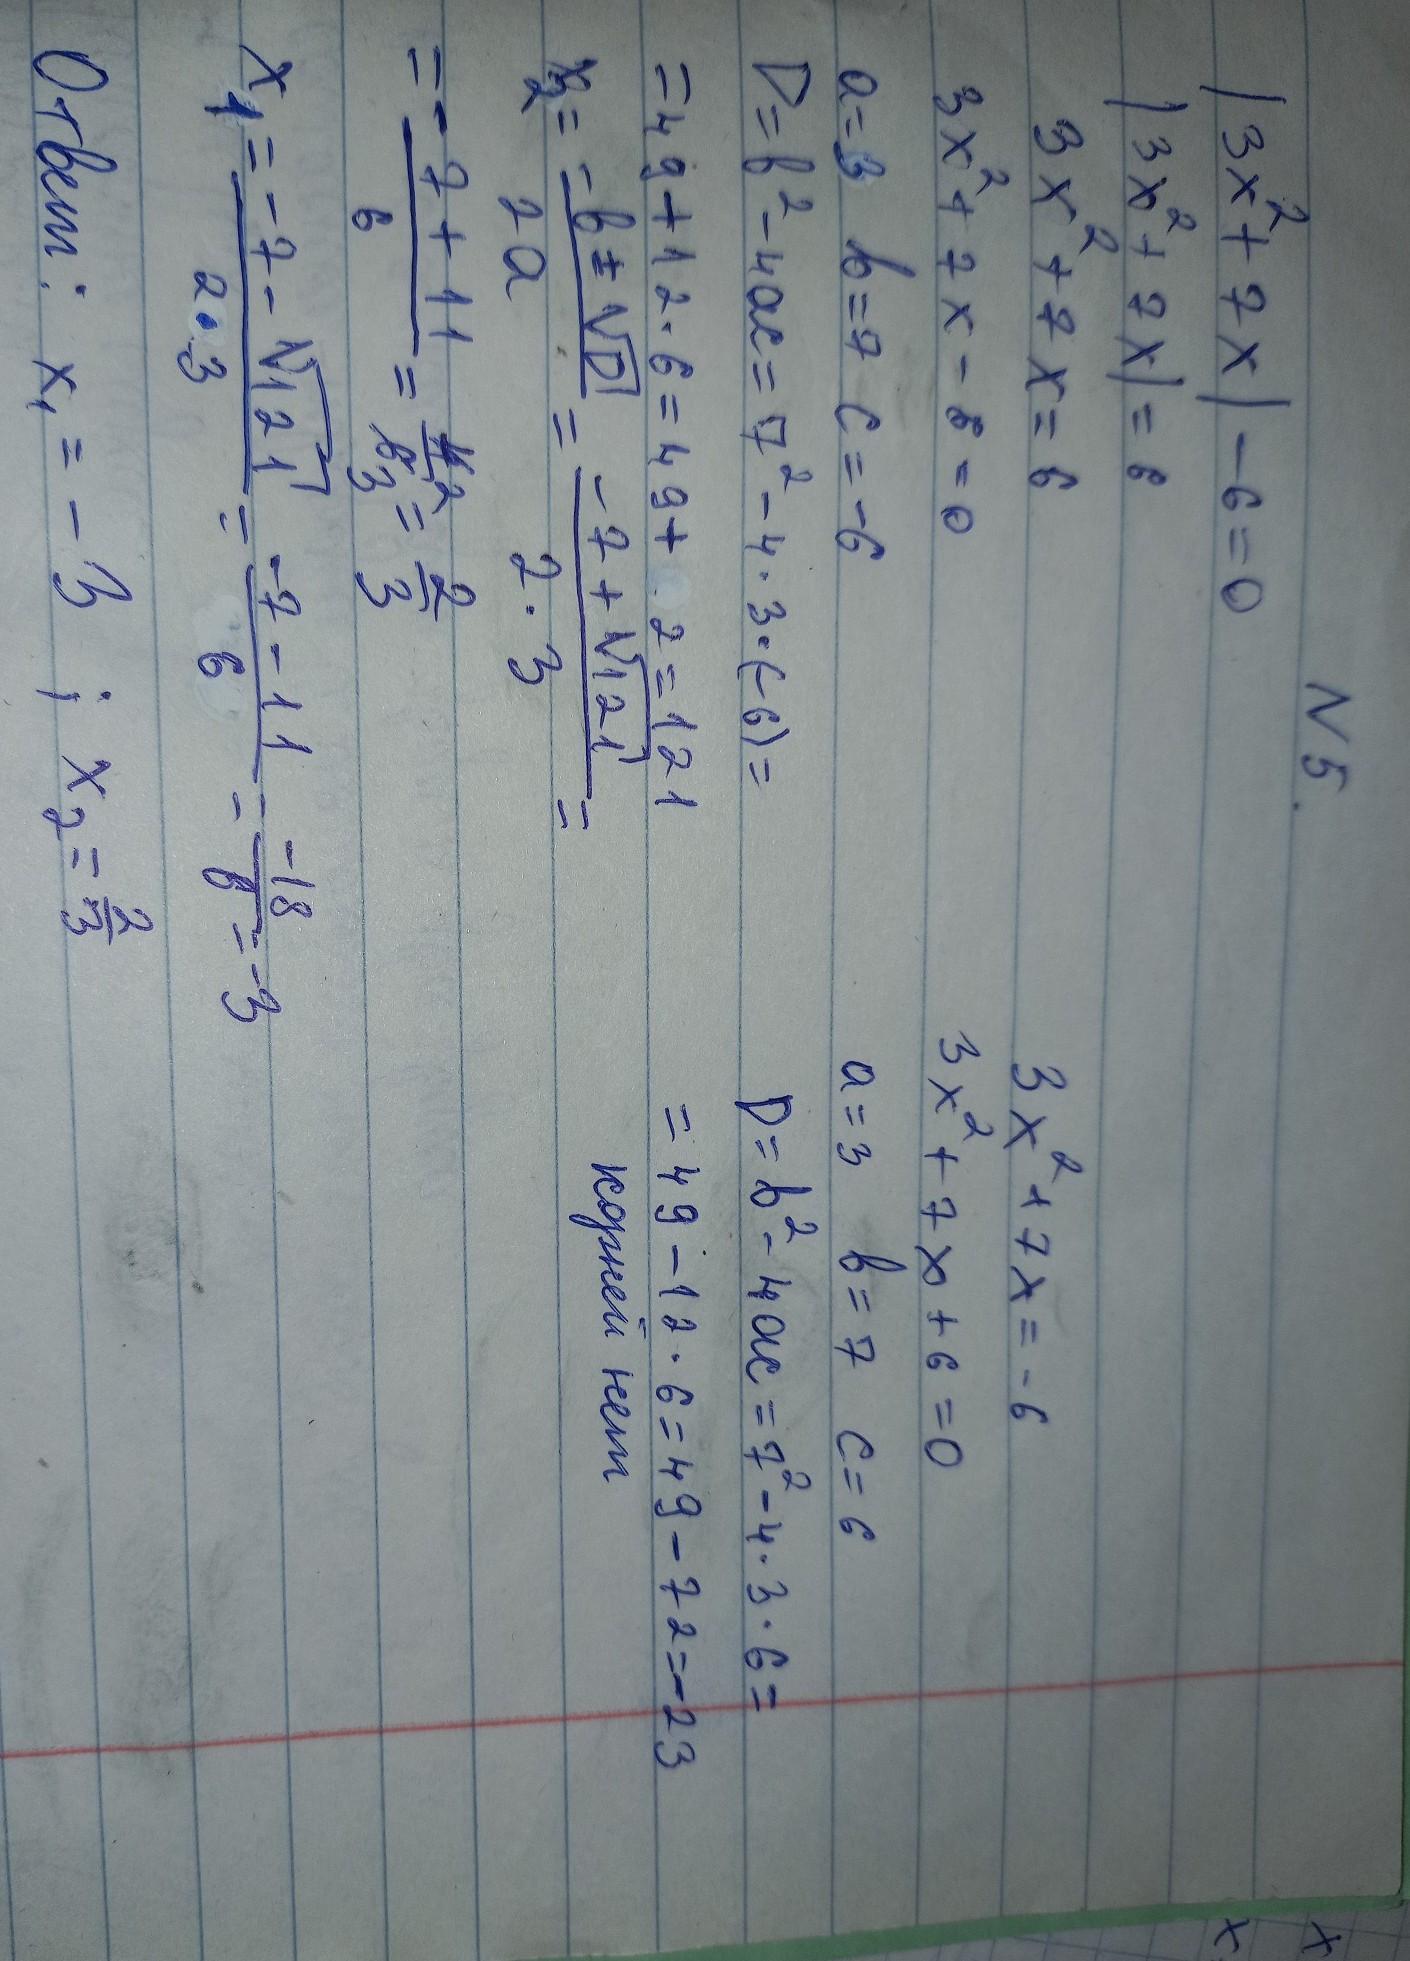 N 5.
|3x²+7x|-6=0
|3x²+7x|=6
3x²+7x=6
3x²+7x-6=0
a=3 b=7 c=-6
D=b²-4ac=7²-4·3·(-6)=
=49+12·6=49+ 2=121
x₂=(-b±√D)/2a=(-7+√121)/2·3=
=(-7+11)/6=4/6=2/3
x₁=(-7-√121)/2·3=(-7-11)/6=-18/6=-3
Ответ: x₁=-3; x₂=2/3
3x²+7x=-6
3x²+7x+6=0
a=3 b=7 c=6
D=b²-4ac=7²-4·3·6=
=49-12·6=49-72=-23
корней нет
x
x